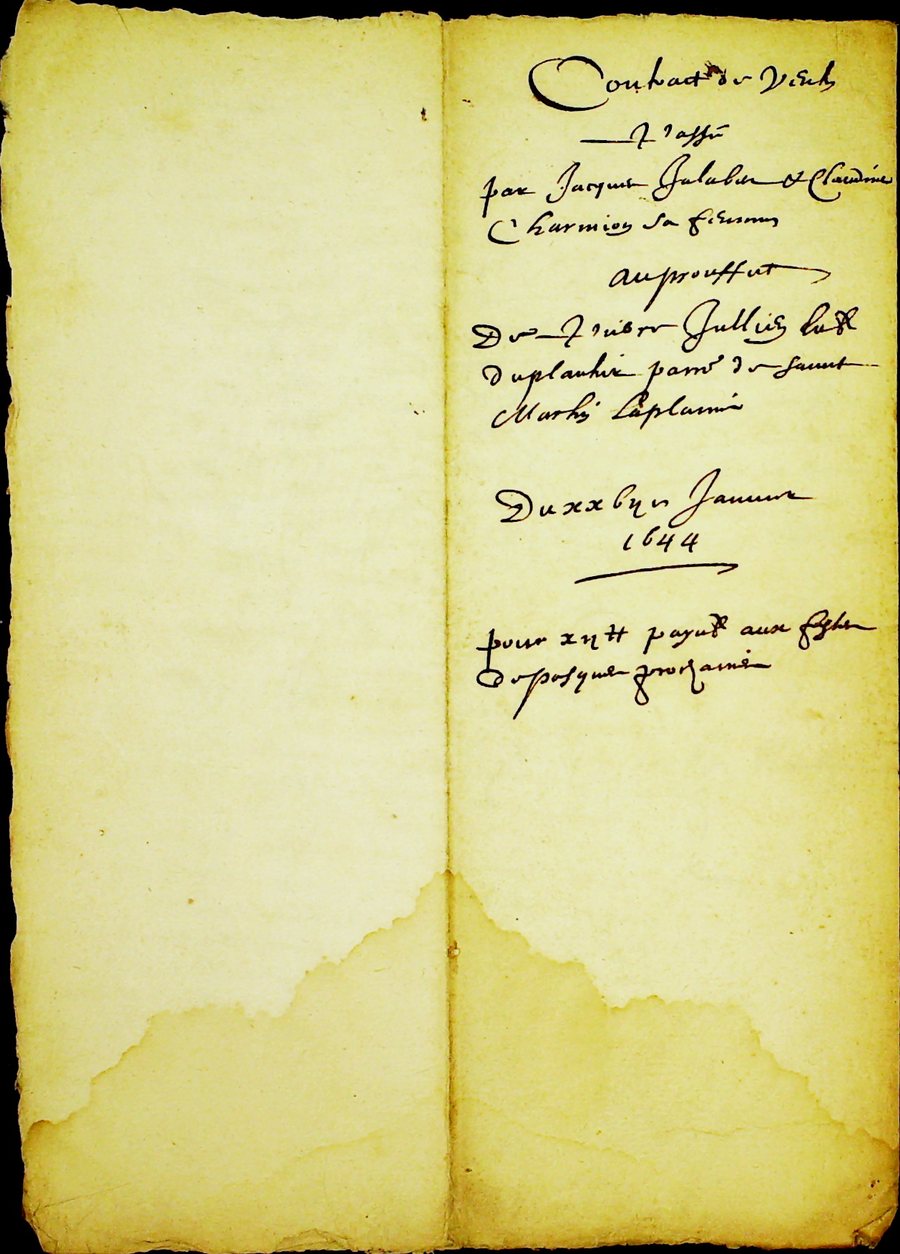 Contract de Vente
Passé
par Jacques Jalaber et Claudine
Charmion sa femme
au prouffict
De Pierre Jullien
du plantier parr̄e de sainct
Marti Laplaine
Du xxbije Janvier
1644
pour xij tt payab aux festes
de pasques prochaines